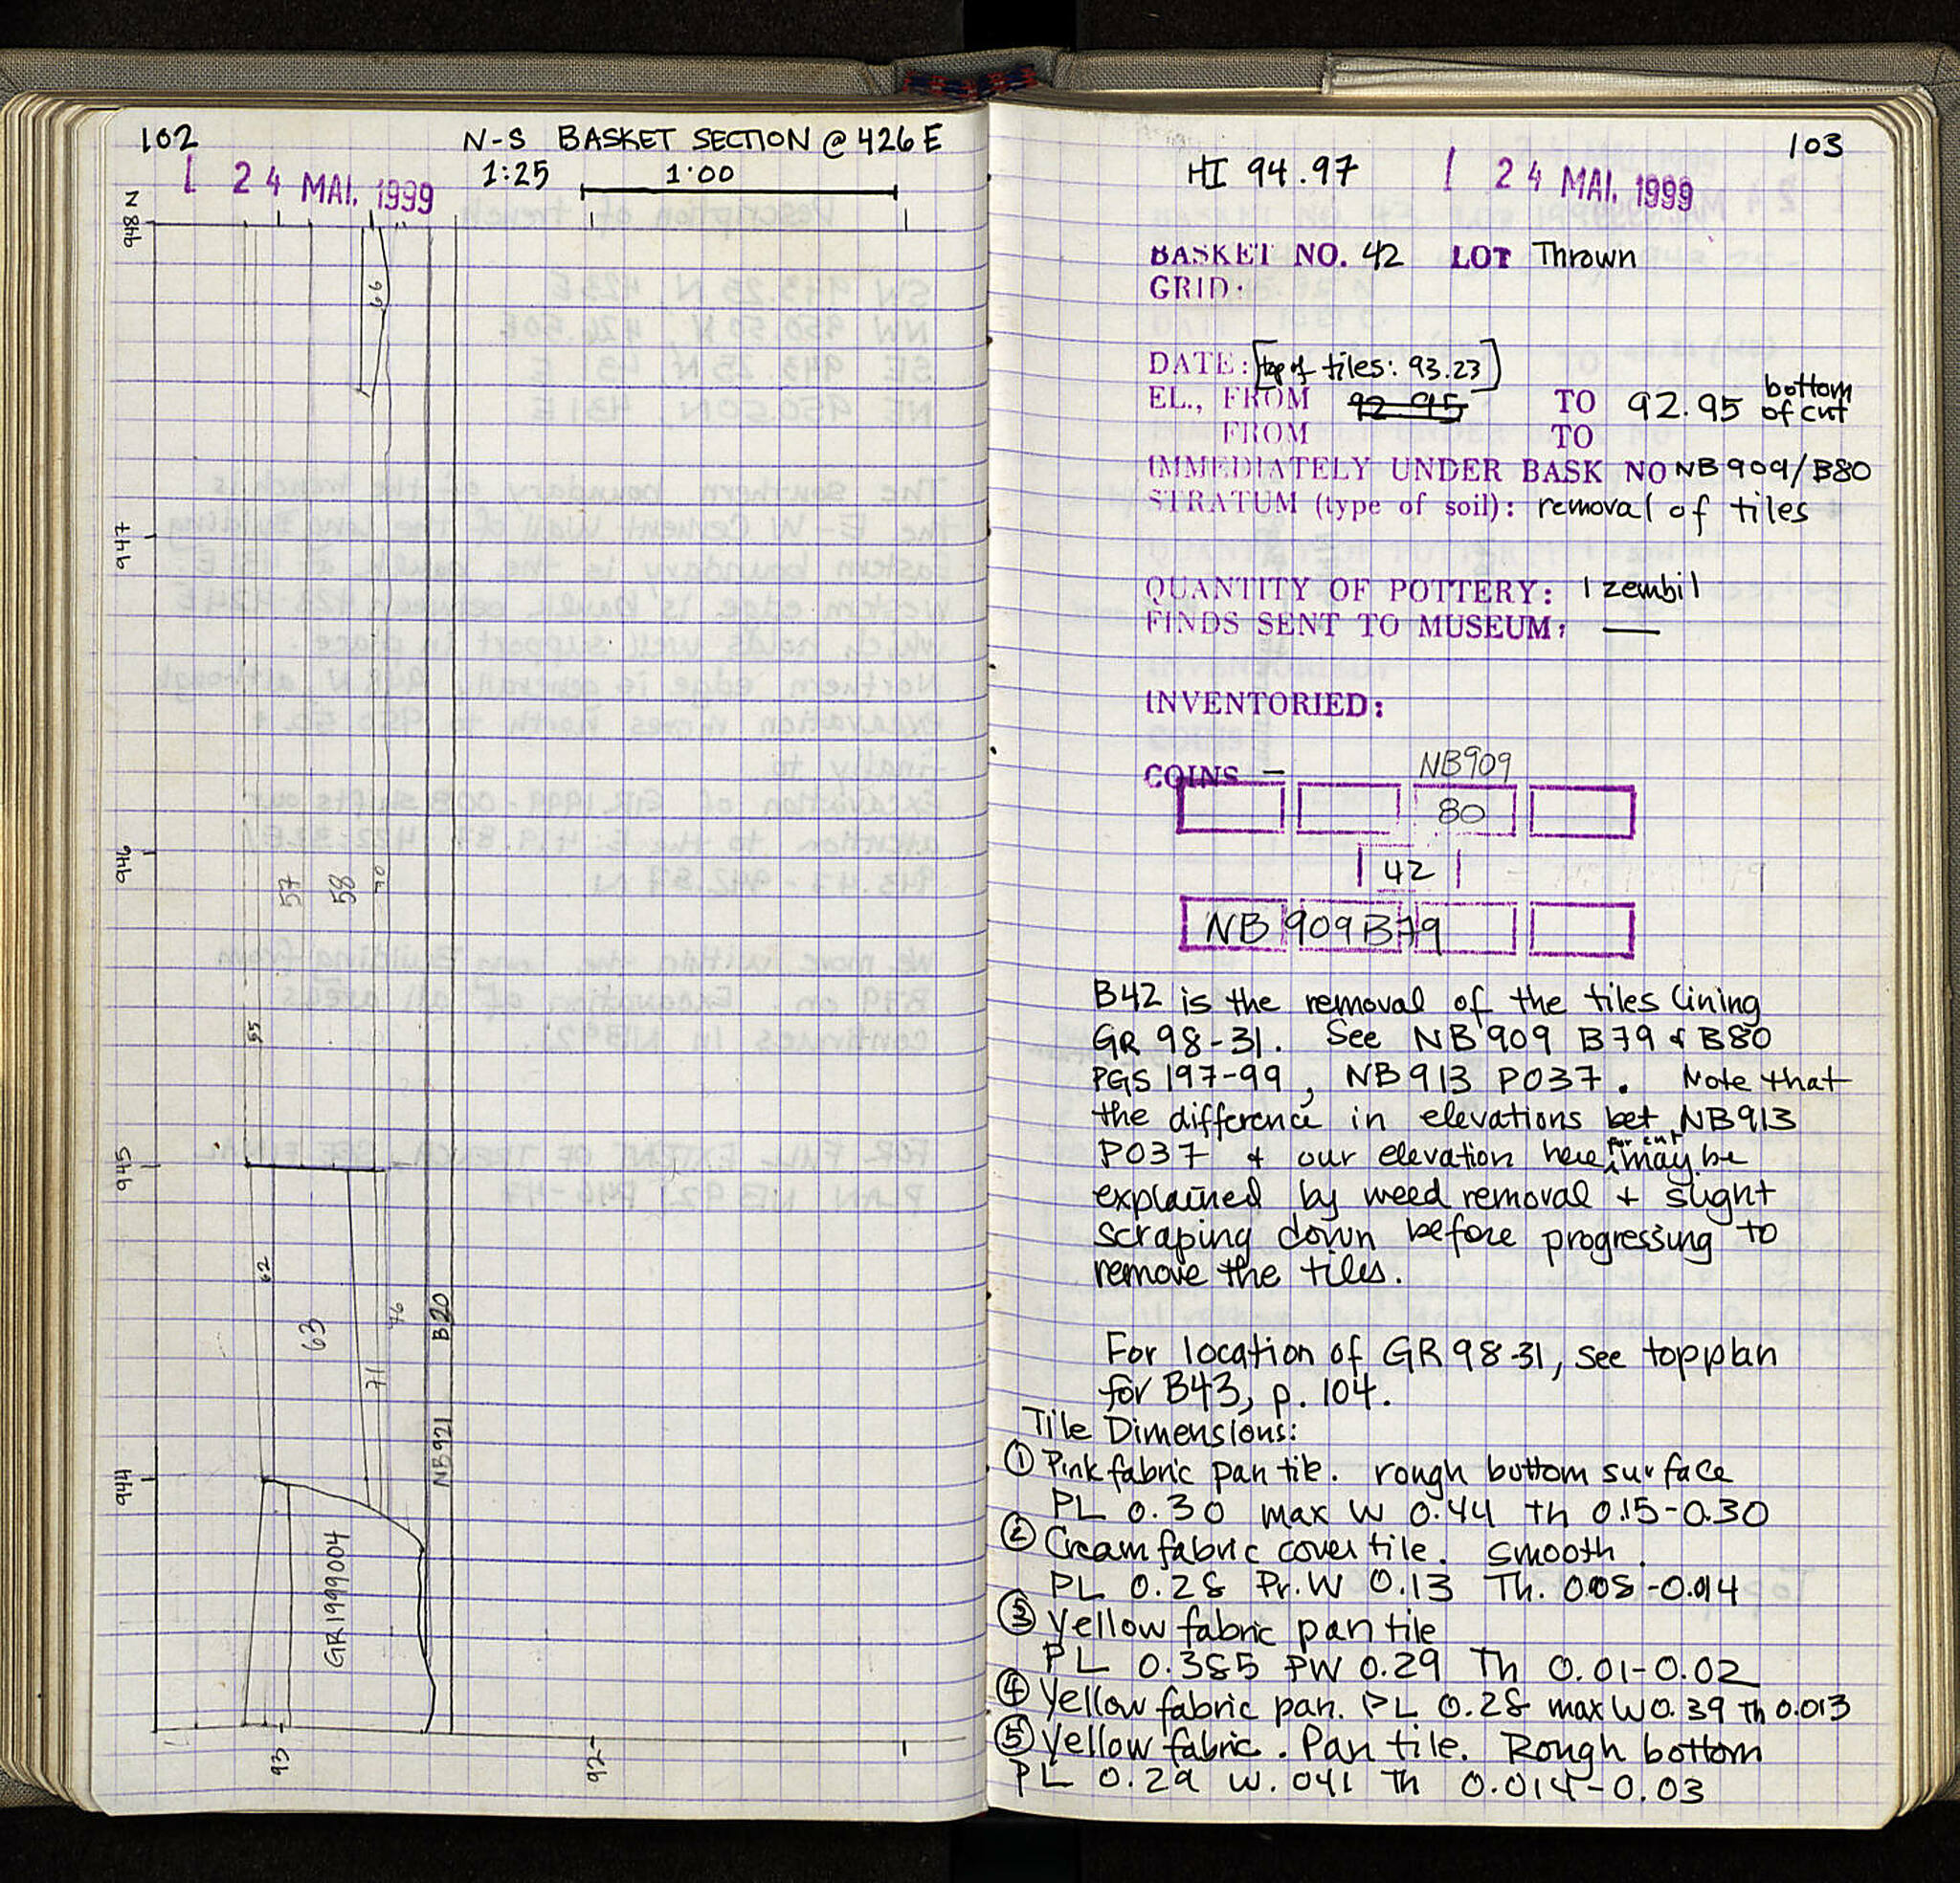 102
N-S BASKET SECTION @ 426 E
24 MAI. 1999
1:25 1.00
N 948
947
946
945
944
66
57
58
40
55
62
63
71
76
NB921 B20
GR1999004
93
92
103
HI 94.97
24 MAI. 1999
BASKET NO. 42 LOT Thrown
GRID:
DATE: [top of tiles: 93.23]
EL., FROM 92.95 TO 92.95 bottom of cut
FROM TO
IMMEDIATELY UNDER BASK NO NB909/B80
STRATUM (type of soil): removal of tiles
QUANTITY OF POTTERY: 1 zembil
FINDS SENT TO MUSEUM: —
INVENTORIED:
COINS —
NB909
80
42
NB 909B79
B42 is the removal of the tiles lining
GR 98-31. See NB909 B79 & B80
PGS 197-99, NB913 P037. Note that
the difference in elevations bet NB913
P037 + our elevation here for cut may be
explained by weed removal + slight
scraping down before progressing to
remove the tiles.
For location of GR 98-31, see topplan
for B43, p. 104.
Tile Dimensions:
① Pink fabric pan tile. rough bottom surface
PL 0.30 max W 0.44 th 0.15-0.30
② Cream fabric cover tile. Smooth.
PL 0.28 Pr. W 0.13 Th. 0.08-0.014
③ Yellow fabric pan tile
PL 0.385 PW 0.29 Th 0.01-0.02
④ Yellow fabric pan. PL 0.28 max W 0.39 Th 0.013
⑤ Yellow fabric. Pan tile. Rough bottom
PL 0.29 W. 041 Th 0.014-0.03